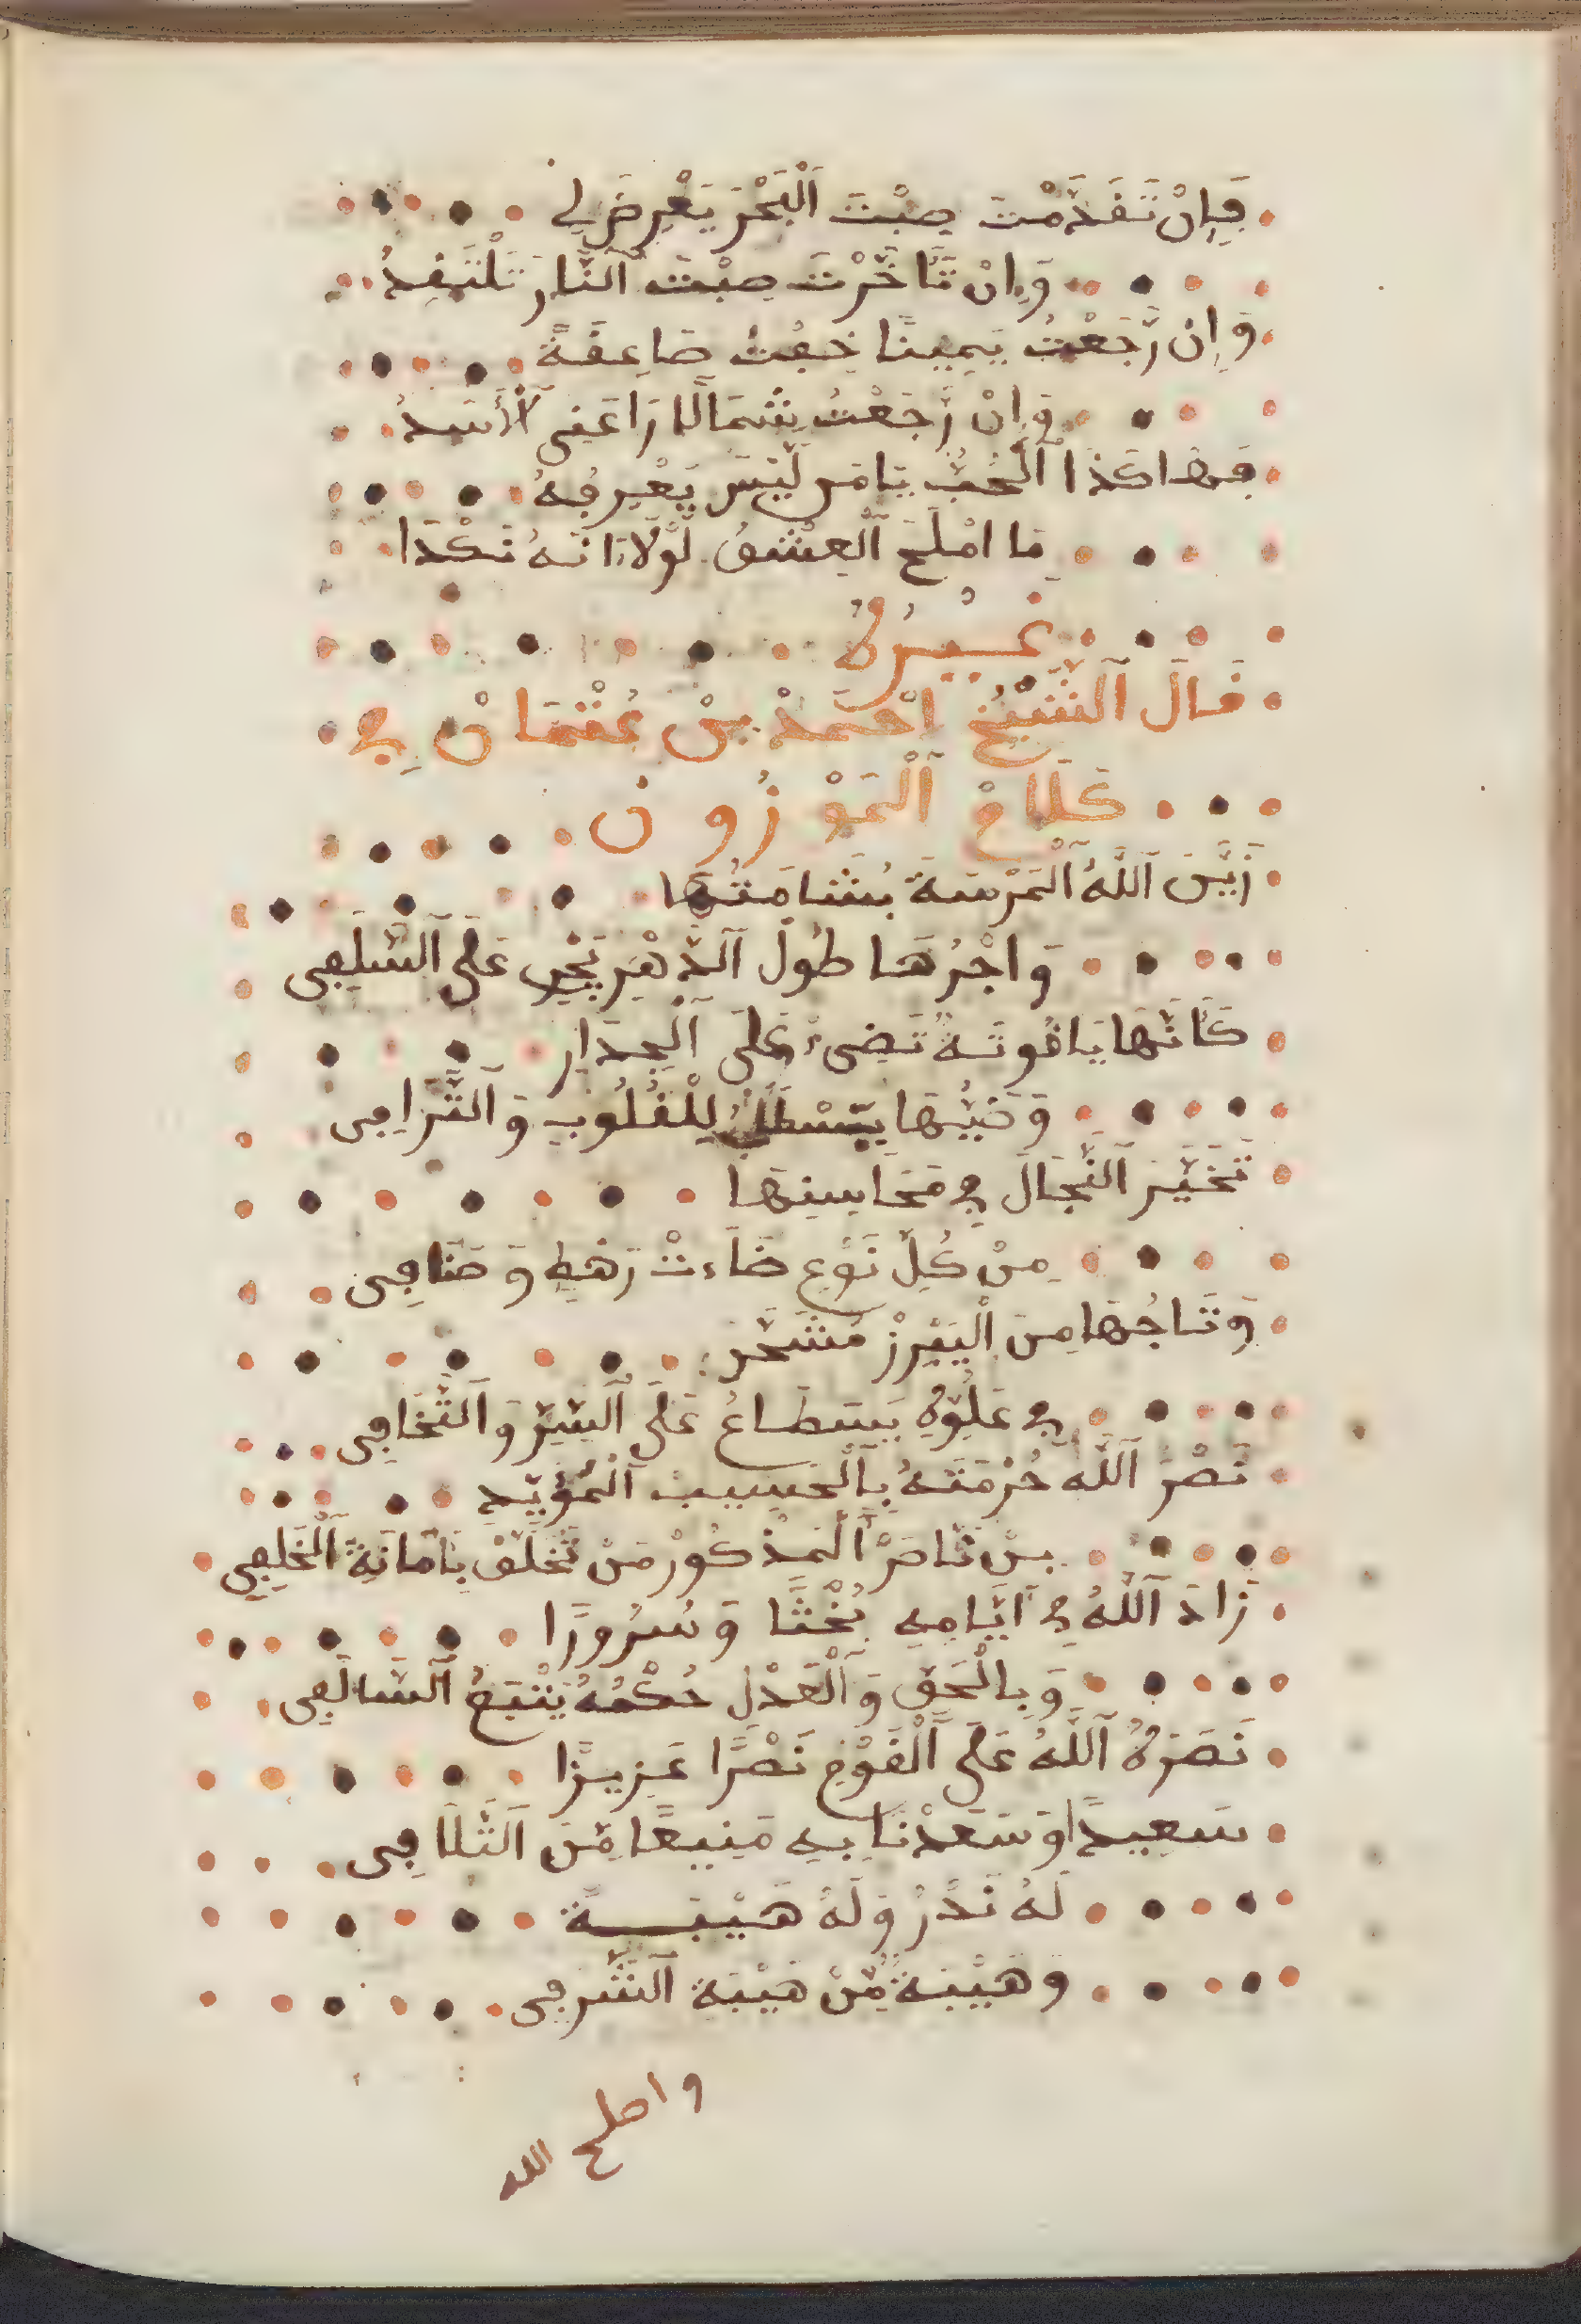 فَإِنْ تَقَدَّمْتَ صِبْتَ اَلْبَحْرَ يَعْرِضَ لِي
وَإِنْ تَأَخَّرْتَ صِبْتَ اَلنَّارَ تَلْتَقِدُ
وَإِنْ رَّجَعْتُ يَمِينًا خِفْتُ صَاعِقَةً
وَإِنْ رَّجَعْتُ شِمَالًا رَاعَنِي اَلْأَسَدُ
فَهَاكَذَا اَلْحُبُّ يَا مَن لَّيْسَ يَعْرِفُهُ
مَا امْلَحَ اَلْعِشْقُ لَوْلَا انَهُ نَكْدَا
غَيْرُهُ
قَالَ اَلشَّيْخُ احْمَدْ بِنْ عُثْمَانْ فِي
كَلَامْ اَلْمَوْزُونْ
زَيَّنَ اَللَّهُ اَلْمَرْسَةَ بُشَامَتُهَا
وَاجْرُهَا طُولْ اَلدَّهْرِ يَجْرِ عَلَى اَلسَّلَفِي
كَأَنَّهَا يَاقُوتَةٌ تَضِيءُ عَلَى اَلْجِدَارِ
وَضَيُّهَا لِلْقُلُوبِ وَالتَّرَامِي
تَحَيَّرَ اَلنَّجَالَ فِي مَحَاسِينِهَا
مِنْ كُلِّ نَوْعٍ ضَاءتْ رَهْطِ وَصَنَافِي
وَتَاجُهَا مِنَ الْيَبْرِزْ مُشَحَّرْ
فِي عَلِوِّهِ يَسْطَاعُ عَلَى اَلسِّرِّ وَالتَّخَافِي
نَصْرَ اَللَّه حُرْمَتَهُ بِالْحَسِيبْ اَلْمُؤَيَّدِ
بِنْ نَاصَرْ اَلْمَذْكُورْ مَنْ تَخَلَّقْ بِأَمَانَةِ اَلْخَلِفِي
زَادَ اَللَّهُ فِي اَيَّامِهِ بُخْتًا وَسُرُورًا
وَبِالْحَقِ وَاَلْعَدْلِ حُكْمُهُ يَتْبَعُ اَلسَّالَفِي
نَصَرَهُ اَللَّهُ عَلَى اَلْقَوْمِ نَصْرًا عَزِيزًا
سَعِيدًا وَسَعَدْنَا بِهِ مَنِيعًا مِّنَ اَلتَّلَافِي
لَهُ نَدْرُ وَلَهُ هَيْبَةٌ
وَهَيْبَةٌ مِّنْ هَيْبَةِ اَلشَّرَفِي
واصلح الله